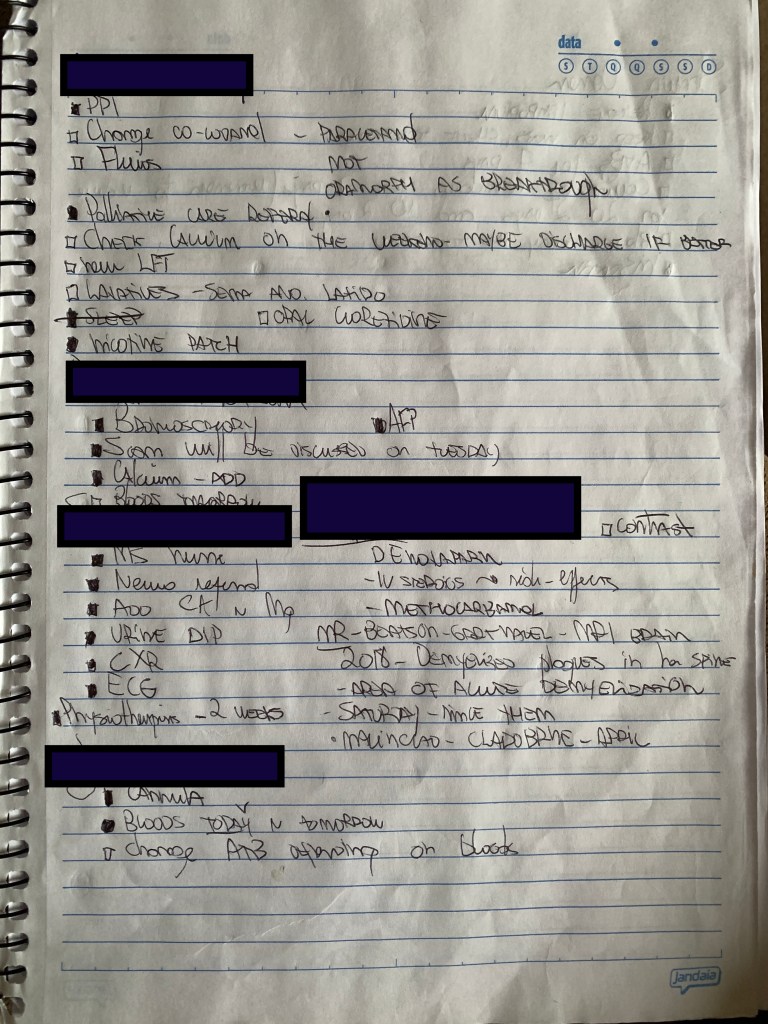 data
S T Q Q S S D
PPI
Change CO-CODAMOL - PARACETAMOL
Fluids NOT
ORAMORPH AS BREAKTHROUGH
Palliative CARE REFERAL
Check Calcium on THE WEEKEND - MAYBE DISCHARGE IF BETTER
new LFT
LAXATIVES - SENA AND
SLEEP ORAL
NICOTINE PATCH
BRONCHOSCOPY AFP
Scan will be DISCUSSED on TUESDAY
Calcium - ADD
BLOODS TOMORROW
CONTRAST
MS nurse
Neuro referral - IV STEROIDS → side-effects
ADD CK N Mg - METHOCARBAMOL
URINE DIP MRI BRAIN
CXR 2018 - Demyelised plaques in her SPINE
ECG - AREA OF ACUTE DEMYELISATION
Physiotherapy - 2 weeks - SATURDAY - THEM
- - APRIL
CANNULA
BLOODS TODAY N TOMORROW
Change ATB depending on bloods
jandaia